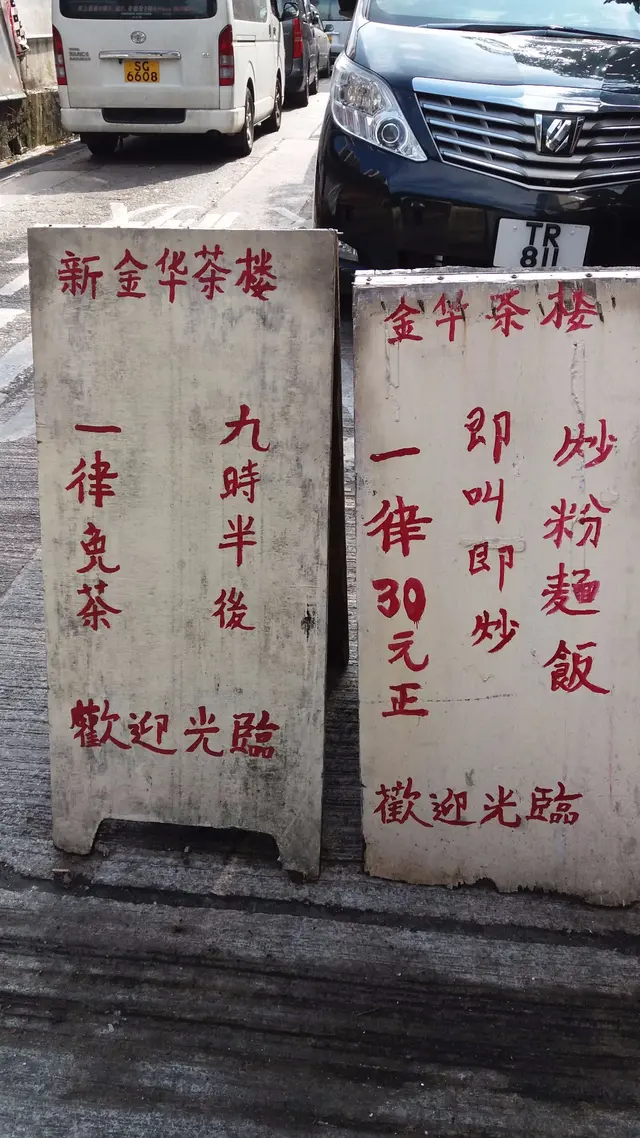 SG
6608
TR
811
新金华茶楼
九時半後
一律免茶
歡迎光臨
金华茶楼
炒粉麵飯
即叫即炒
一律30元正
歡迎光臨